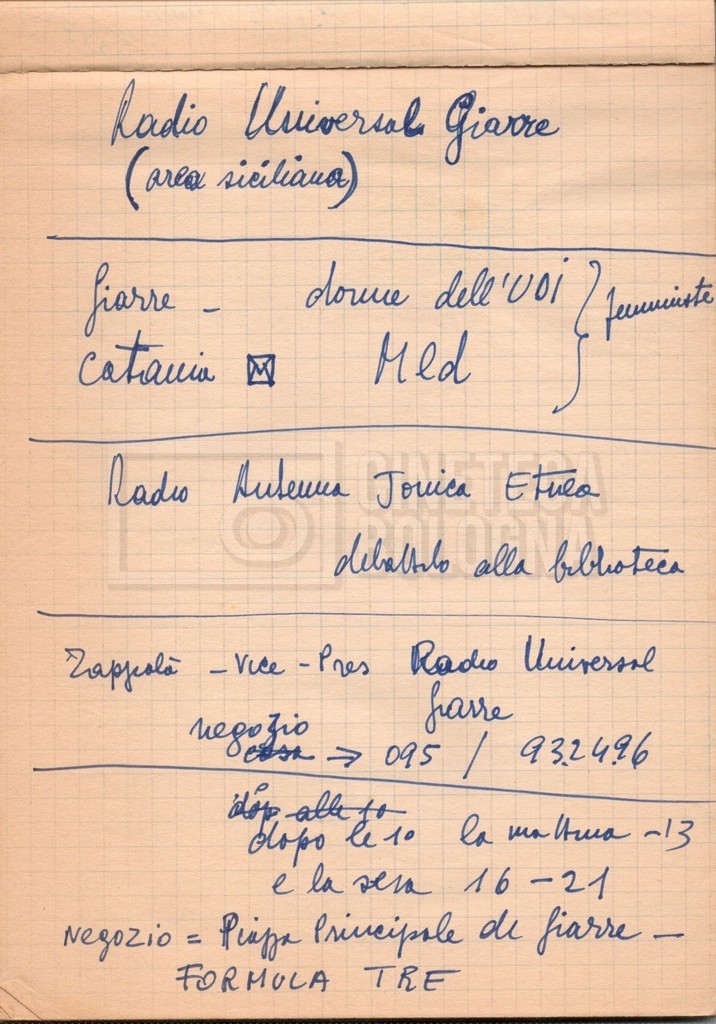 Radio Universal Giarre
(area siciliana)
Giarre - donne dell'UDI } femministe
Catania M Mld
CINETECA
BOLOGNA
Radio Antenna Jonica Etnea
dibattito alla biblioteca
Zappalà - Vice - Pres Radio Universal
Giarre
negozio
casa → 095 / 932496
dop alle 10
dopo le 10 la mattina - 13
e la sera 16 - 21
Negozio = Piazza Principale di Giarre -
FORMULA TRE